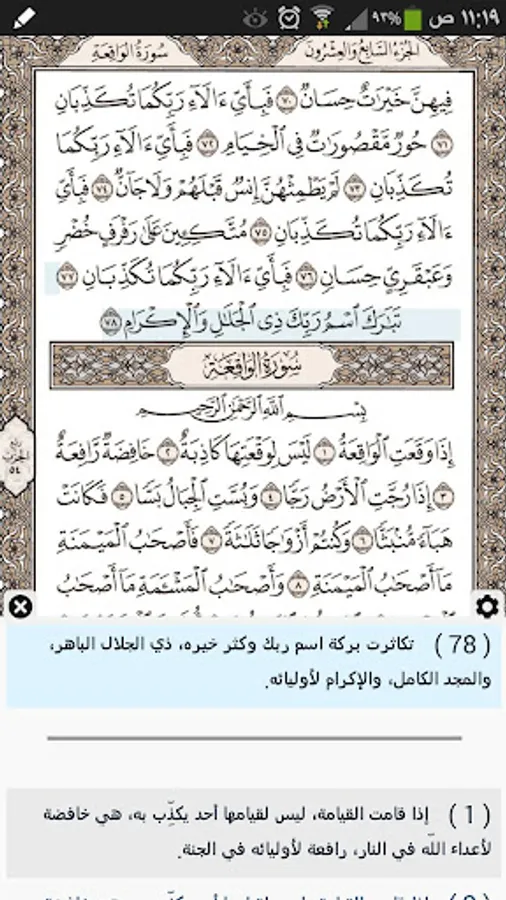 ١١:١٩ ص ٩٣%
الجزء السابع والعشرون
سورة الواقعة
فِيهِنَّ خَيْرَاتٌ حِسَانٌ ٧٠ فَبِأَيِّ ءَالَآءِ رَبِّكُمَا تُكَذِّبَانِ
٧١ حُورٌ مَّقْصُورَاتٌ فِي ٱلْخِيَامِ ٧٢ فَبِأَيِّ ءَالَآءِ رَبِّكُمَا
تُكَذِّبَانِ ٧٣ لَمْ يَطْمِثْهُنَّ إِنسٌ قَبْلَهُمْ وَلَا جَآنٌّ ٧٤ فَبِأَيِّ
ءَالَآءِ رَبِّكُمَا تُكَذِّبَانِ ٧٥ مُتَّكِـِٔينَ عَلَىٰ رَفْرَفٍ خُضْرٍ
وَعَبْقَرِيٍّ حِسَانٍ ٧٦ فَبِأَيِّ ءَالَآءِ رَبِّكُمَا تُكَذِّبَانِ ٧٧
تَبَٰرَكَ ٱسْمُ رَبِّكَ ذِي ٱلْجَلَٰلِ وَٱلْإِكْرَامِ ٧٨
سُورَةُ الوَاقِعَةِ
بِسْمِ ٱللَّهِ ٱلرَّحْمَٰنِ ٱلرَّحِيمِ
إِذَا وَقَعَتِ ٱلْوَاقِعَةُ ١ لَيْسَ لِوَقْعَتِهَا كَاذِبَةٌ ٢ خَافِضَةٌ رَّافِعَةٌ
٣ إِذَا رُجَّتِ ٱلْأَرْضُ رَجًّا ٤ وَبُسَّتِ ٱلْجِبَالُ بَسًّا ٥ فَكَانَتْ
هَبَآءً مُّنۢبَثًّا ٦ وَكُنتُمْ أَزْوَٰجًا ثَلَٰثَةً ٧ فَأَصْحَٰبُ ٱلْمَيْمَنَةِ
مَآ أَصْحَٰبُ ٱلْمَيْمَنَةِ ٨ وَأَصْحَٰبُ ٱلْمَشْـَٔمَةِ مَآ أَصْحَٰبُ
الحزب
٥٤
( 78 ) تكاثرت بركة اسم ربك وكثر خيره، ذي الجلال الباهر،
والمجد الكامل، والإكرام لأوليائه.
( 1 ) إذا قامت القيامة، ليس لقيامها أحد يكذِّب به، هي خافضة
لأعداء اللّه في النار، رافعة لأوليائه في الجنة.